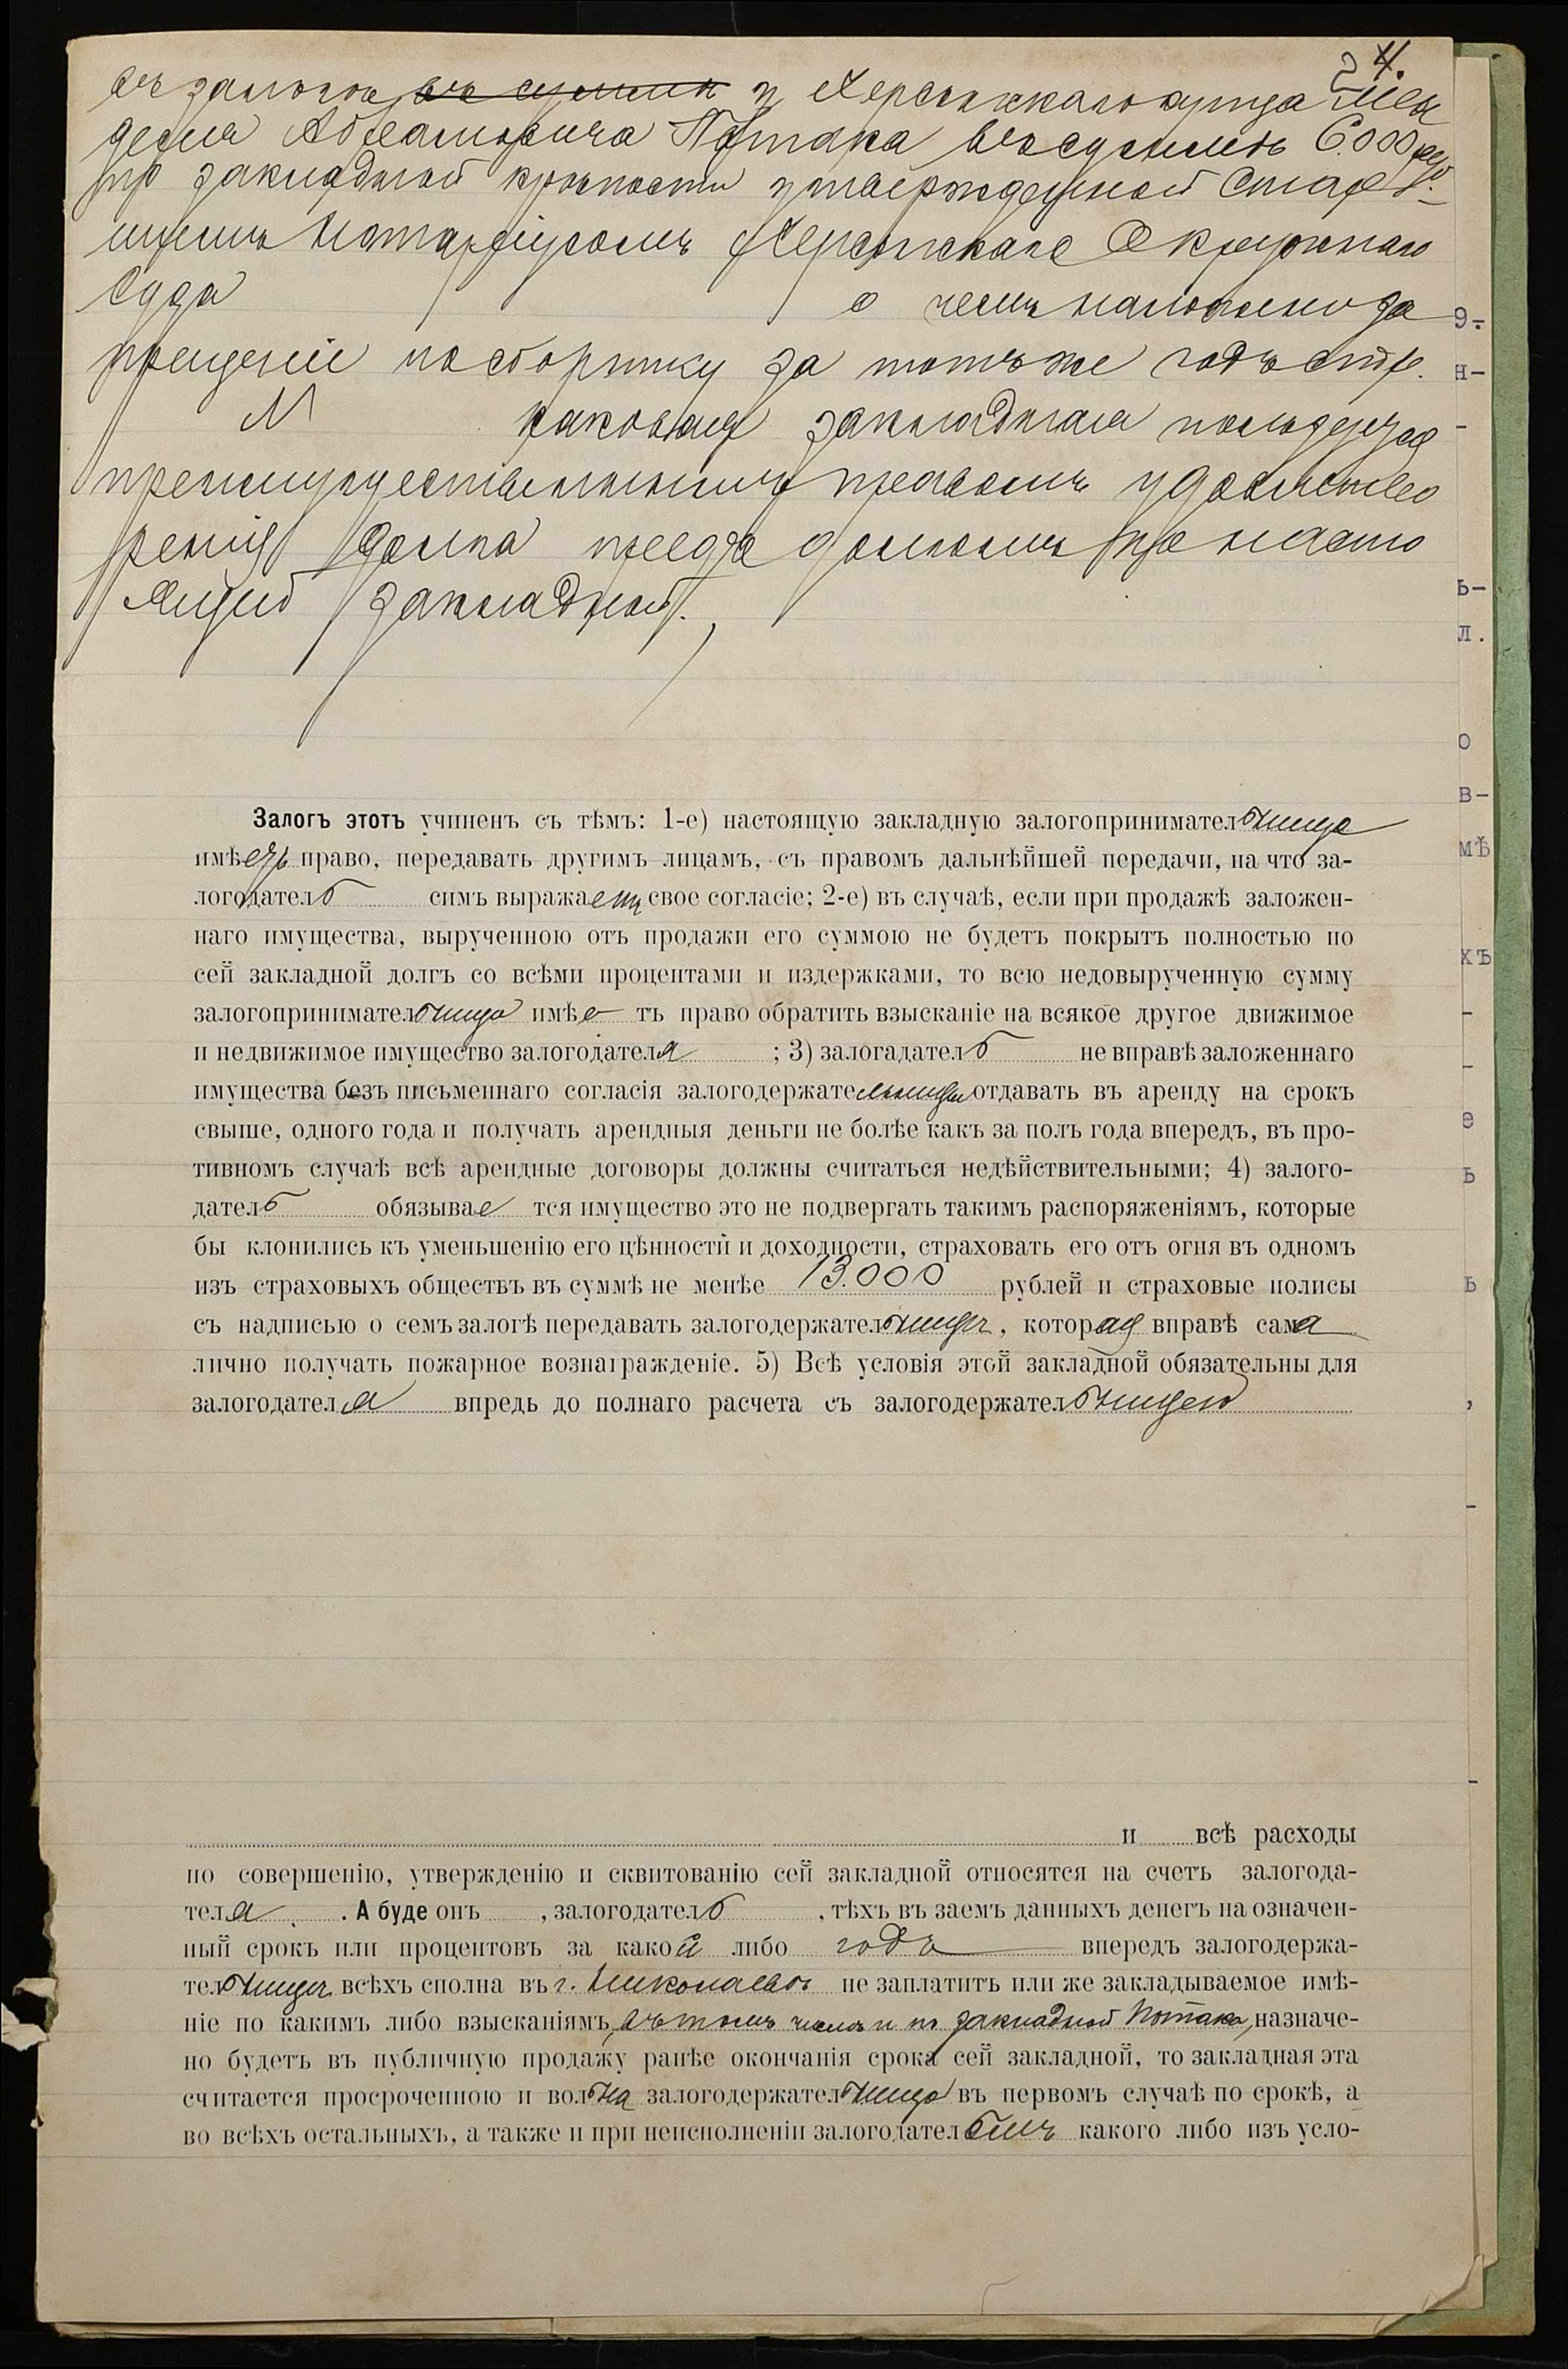 4.
въ залогѣ въ суммѣ у Херсонскаго купца Мен
деля Абрамовича Потака въ суммѣ 6.000 руб.
по закладной крѣпости утвержденной Стар-
шимъ Нотаріусомъ Херсонскаго Окружнаго
Суда о чемъ наложено за
прещеніе по сборнику за тотъ же годъ стр.
№ каковая закладная пользуется
преимущественнымъ правомъ удовлетво
ренія долга предъ долгомъ по насто
ящей закладной.
Залогъ этотъ учиненъ съ тѣмъ: 1-е) настоящую закладную залогопринимательница
имѣетъ право, передавать другимъ лицамъ, съ правомъ дальнѣйшей передачи, на что за-
логодатель симъ выражаетъ свое согласіе; 2-е) въ случаѣ, если при продажѣ заложен-
наго имущества, вырученною отъ продажи его суммою не будетъ покрытъ полностью по
сей закладной долгъ со всѣми процентами и издержками, то всю недовырученную сумму
залогопринимательница имѣе тъ право обратить взысканіе на всякое другое движимое
и недвижимое имущество залогодателя ; 3) залагадатель не вправѣ заложеннаго
имущества безъ письменнаго согласія залогодержательницы отдавать въ аренду на срокъ
свыше, одного года и получать арендныя деньги не болѣе какъ за полъ года впередъ, въ про-
тивномъ случаѣ всѣ арендные договоры должны считаться недѣйствительными; 4) залого-
датель обязывае тся имущество это не подвергать такимъ распоряженіямъ, которые
бы клонились къ уменьшенію его цѣнности и доходности, страховать его отъ огня въ одномъ
изъ страховыхъ обществъ въ суммѣ не менѣе 13.000 рублей и страховые полисы
съ надписью о семъ залогѣ передавать залогодержательницѣ, которая вправѣ сама
лично получать пожарное вознагражденіе. 5) Всѣ условія этой закладной обязательны для
залогодателя впредь до полнаго расчета съ залогодержательницей
и всѣ расходы
по совершенію, утвержденію и сквитованію сей закладной относятся на счетъ залогода-
теля . А буде онъ , залогодатель , тѣхъ въ заемъ данныхъ денегъ на означен-
ный срокъ или процентовъ за какой либо годъ впередъ залогодержа-
тельницѣ всѣхъ сполна въ г. Николаевѣ не заплатитъ или же закладываемое имѣ-
ніе по какимъ либо взысканіямъ, въ томъ числѣ и по закладной Потака, назначе-
но будетъ въ публичную продажу ранѣе окончанія срока сей закладной, то закладная эта
считается просроченною и вольна залогодержательница въ первомъ случаѣ по срокѣ, а
во всѣхъ остальныхъ, а также и при неисполненіи залогодателемъ какого либо изъ усло-